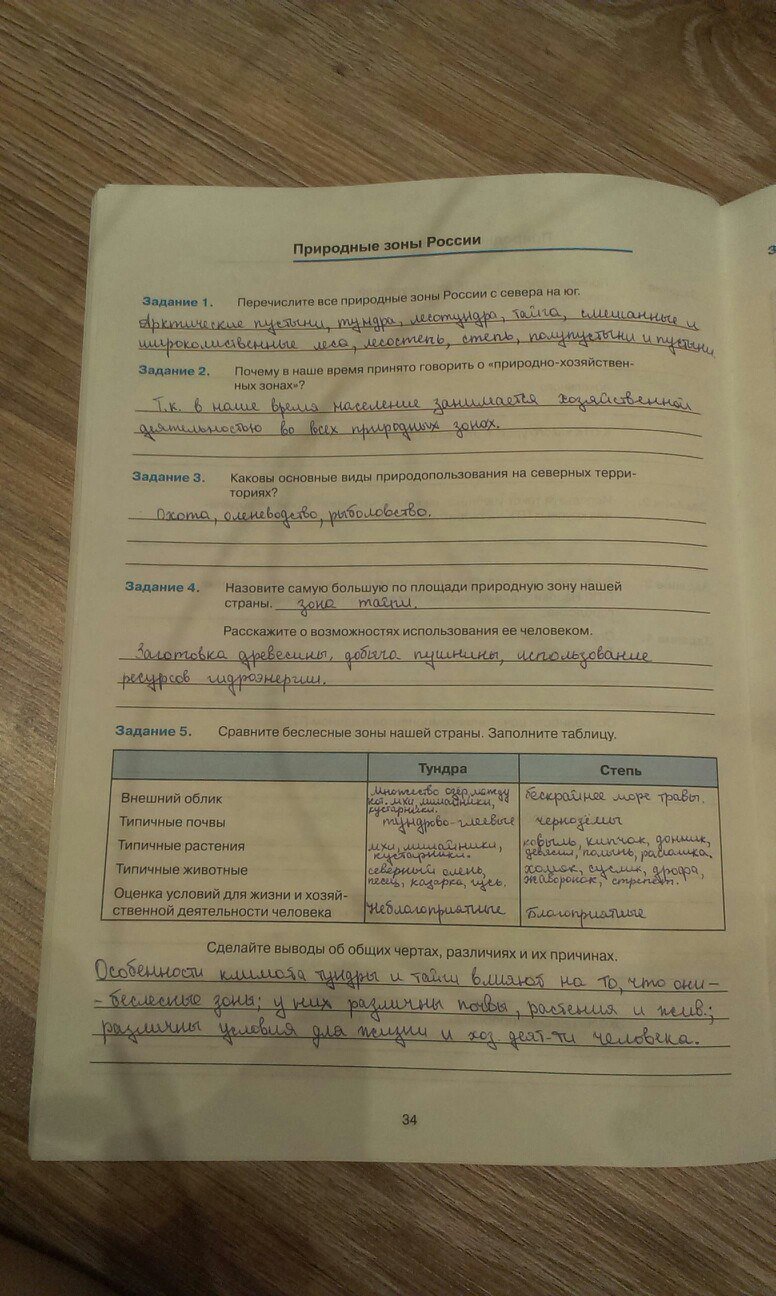 Природные зоны России
Задание 1. Перечислите все природные зоны России с севера на юг.
Арктические пустыни, тундра, лесотундра, тайга, смешанные и
широколиственные леса, лесостепь, степь, полупустыни и пустыни
Задание 2. Почему в наше время принято говорить о «природно-хозяйствен-
ных зонах»?
Т.к. в наше время население занимается хозяйственной
деятельностью во всех природных зонах.
Задание 3. Каковы основные виды природопользования на северных терри-
ториях?
Охота, оленеводство, рыболовство.
Задание 4. Назовите самую большую по площади природную зону нашей
страны. зона тайги.
Расскажите о возможностях использования ее человеком.
Заготовка древесины, добыча пушнины, использование
ресурсов гидроэнергии.
Задание 5. Сравните беслесные зоны нашей страны. Заполните таблицу.
Тундра Степь
Внешний облик множество озёр, между кот. мхи, лишайники, кустарники. бескрайнее море травы.
Типичные почвы тундрово-глеевые чернозёмы
Типичные растения мхи, лишайники, кустарники. ковыль, кипчак, донник, девясил, полынь,
Типичные животные северный олень, песец, казарка, гусь. хомяк, суслик, дрофа, жаворонок, стрепет.
Оценка условий для жизни и хозяй-
ственной деятельности человека Неблагоприятные Благоприятные
Сделайте выводы об общих чертах, различиях и их причинах.
Особенности климата тундры и тайги влияют на то, что они-
- беслесные зоны; у них различны почвы, растения и жив.;
различны условия для жизни и хоз. деят-ти человека.
34